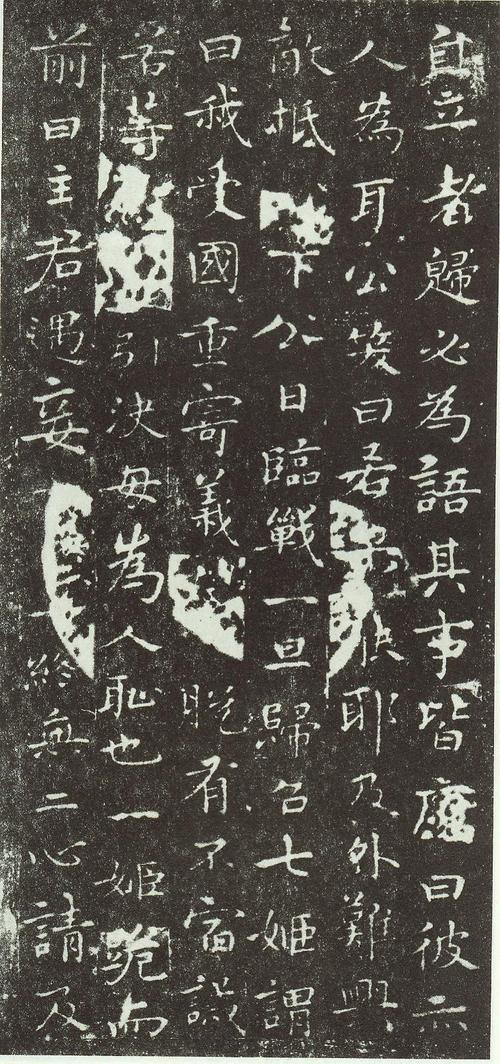 自立者歸必為語其事皆應曰彼亦
人為耳公笑曰若耶及外難興
敵抵下公日臨戰一旦歸召七姬謂
曰我受國重寄義脫有不宿誡
若等引決毋為人恥也一姬跪而
前曰主君遇妾終無二心請及